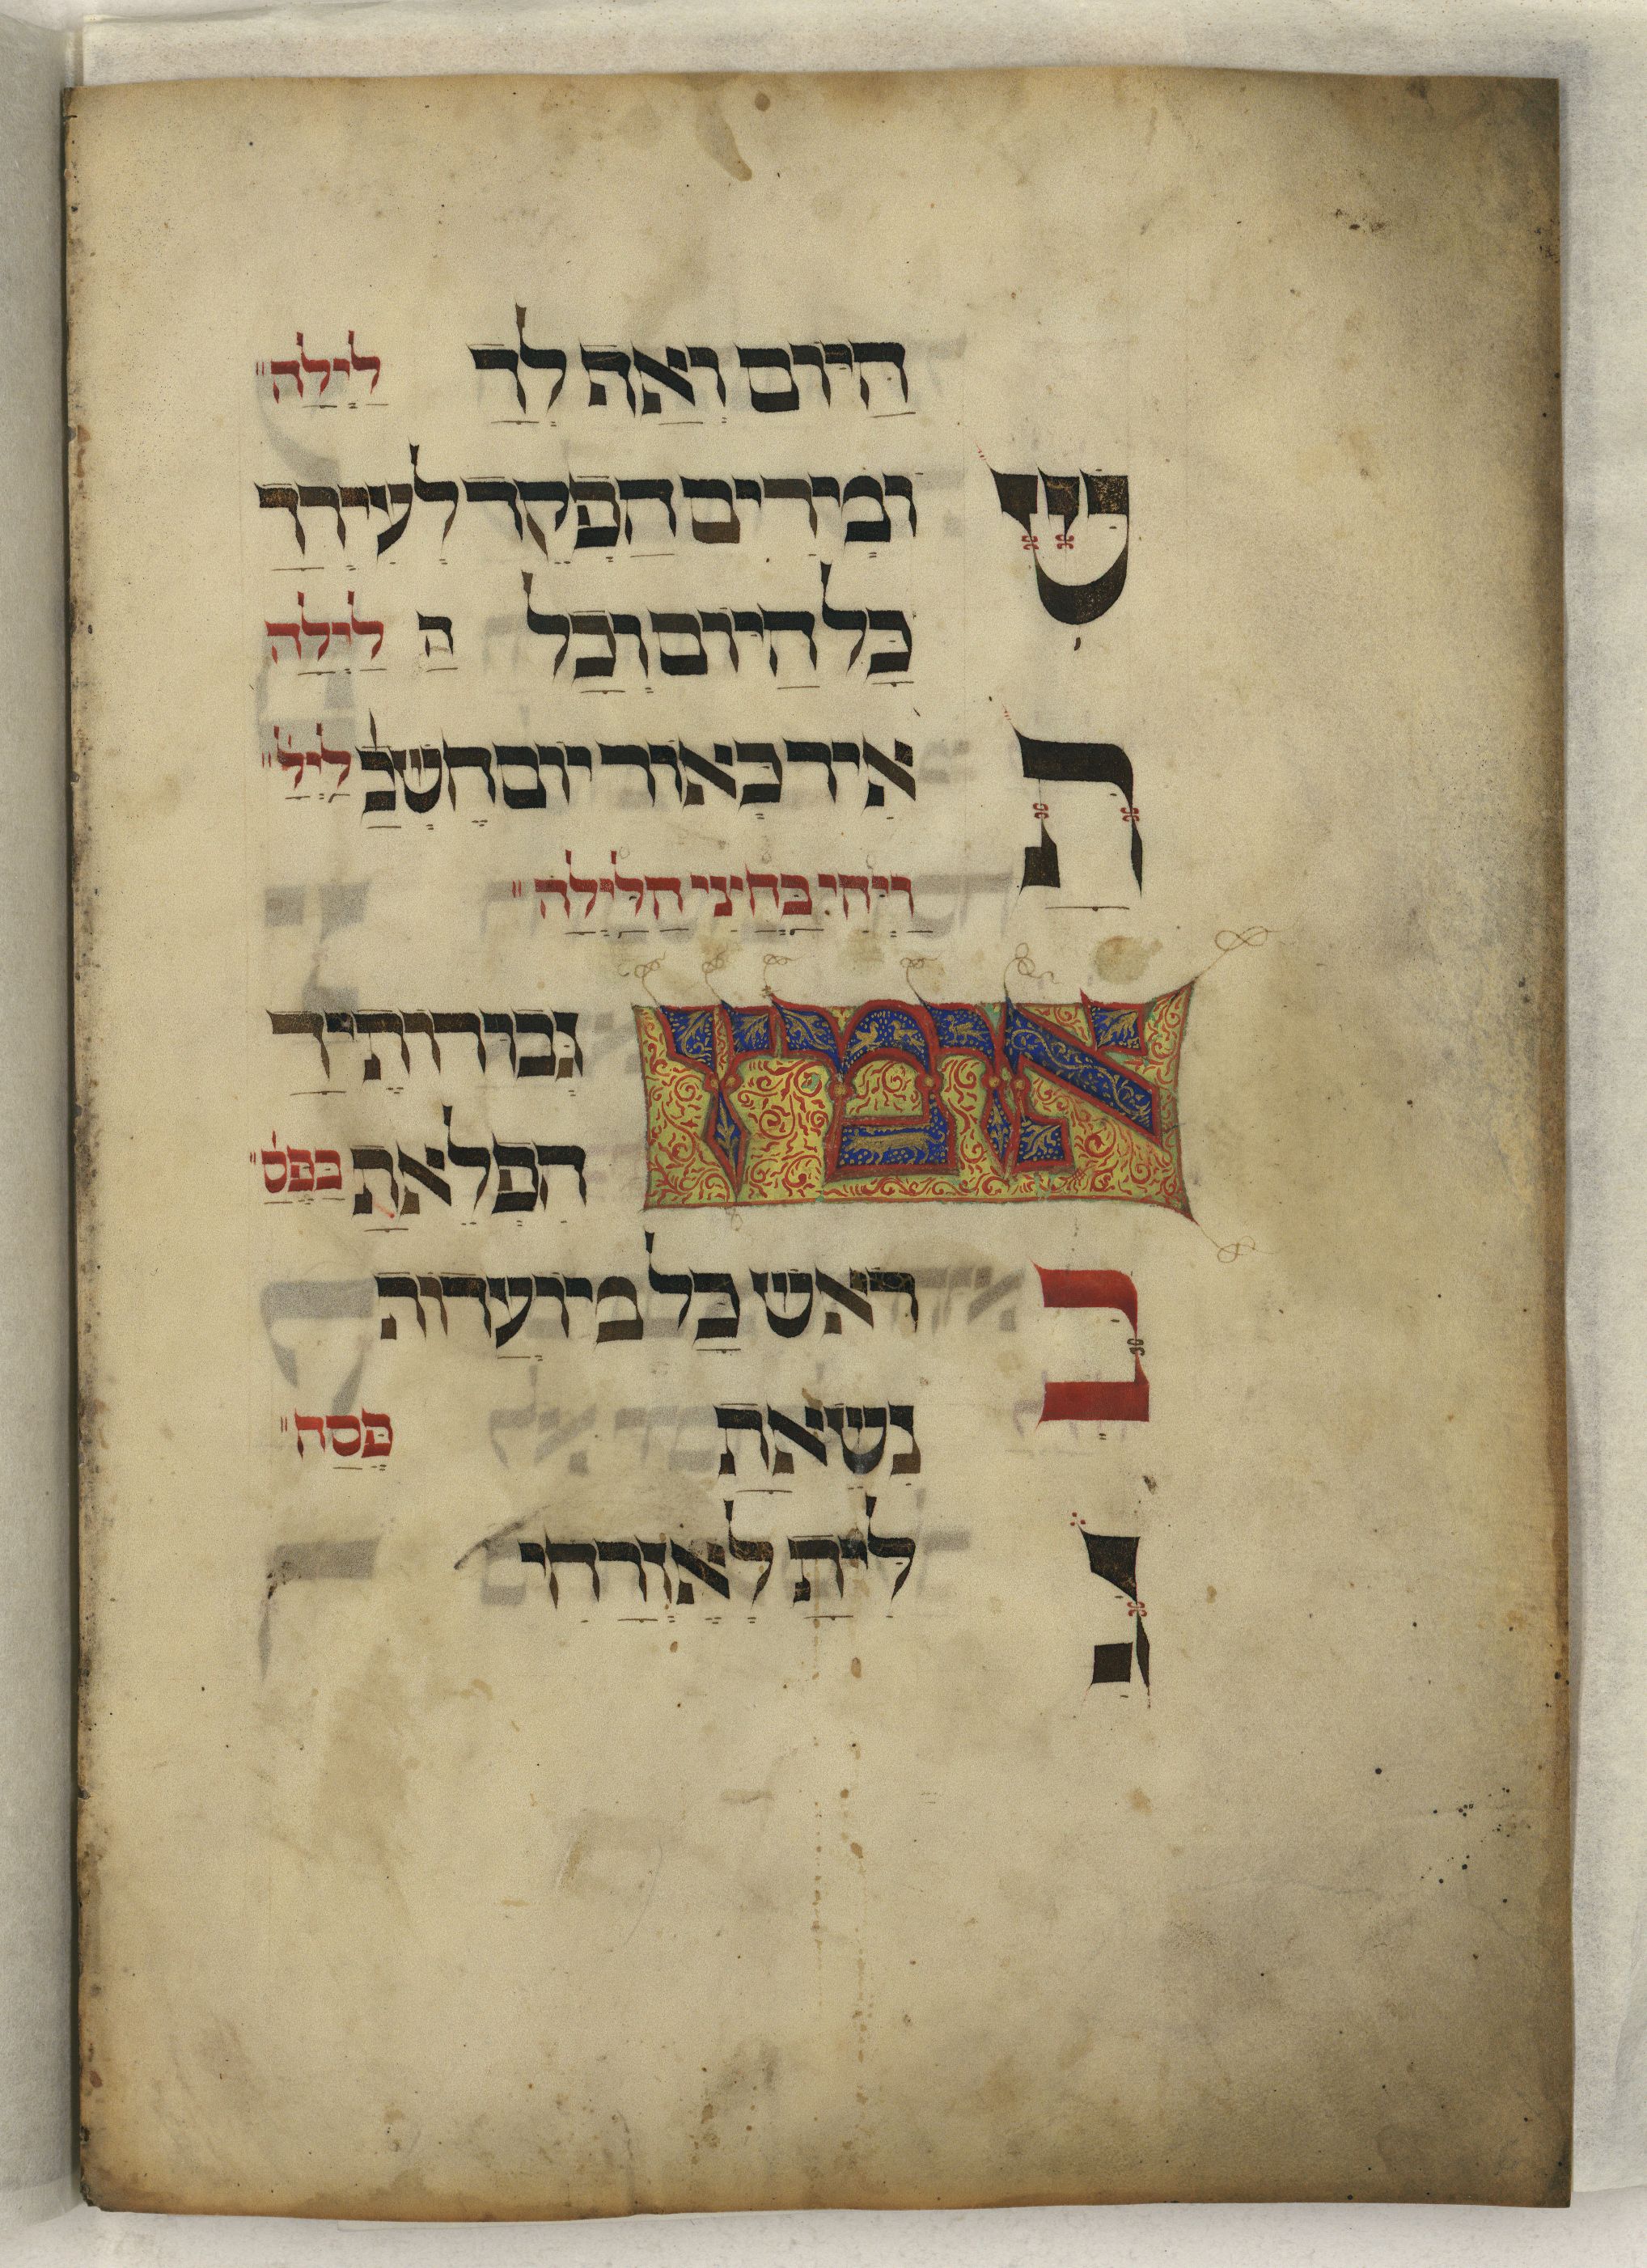 היום ואף לך לילה
שומרים הפקד לעירך
כל היום וכל ה לילה
תאיר כאור יום חשכ ליל
ויהי בחצי הלילה
אומץ גבורותיך
הפלאת בפס
בראש כל מועדות
נשאת פסח
גלית לאזרחי